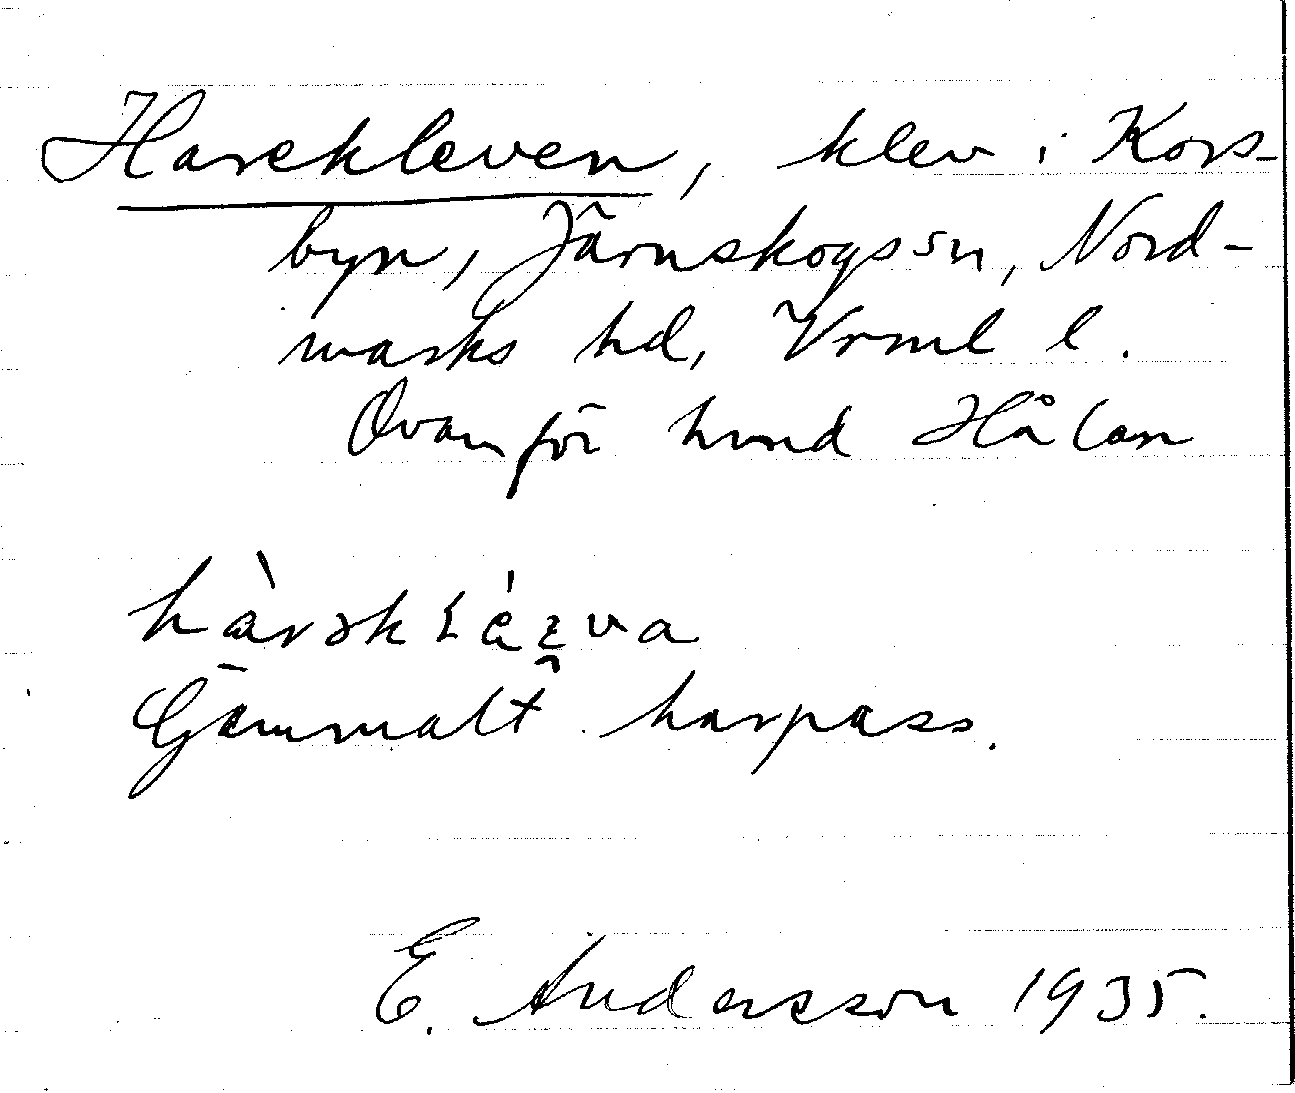 Harekleven, klev i Kors-
byn, Järnskogs sn, Nord-
marks hd, Vrml l.
Ovanför hmd Hålan
Gammalt harpass.
E. Andersson 1935.